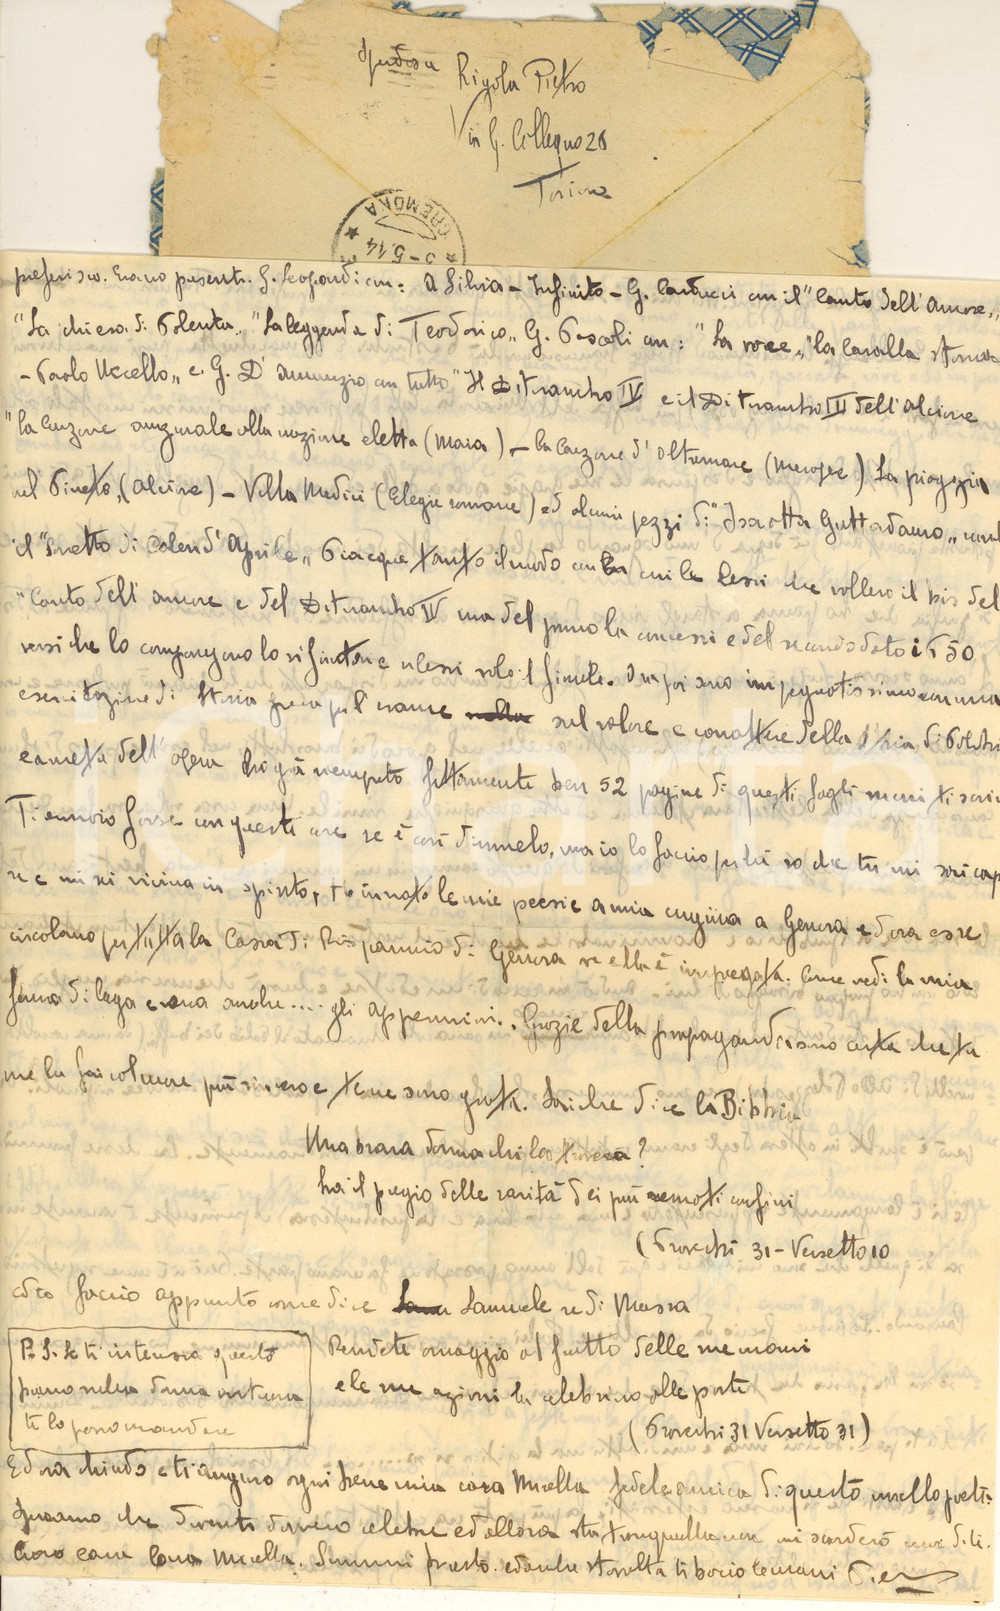 Rigola Pietro
Via G. Collegno 26
Torino
CREMONA
5-5.44
preferisco. Erano presenti G. Leopardi con: A Silvia - Infinito - G. Carducci con il "Canto dell'Amore"
"La chiesa di Polenta" "La leggenda di Teodorico" G. Pascoli con: "La voce" "La Cavalla storna
- Paolo Uccello" e G. D'Annunzio con tutto "Il Ditirambo IV e il Ditirambo III dell'Alcione
"La Canzone augurale alla nazione eletta (Maia) - la Canzone d'Oltremare (Merope) La pioggia
nel Pineto, (Alcione) - Villa Medici (Elegie romane) ed alcuni pezzi di "Isaotta Guttadauro"
il "Sonetto di Calen d'Aprile" Piacque tanto il modo con cui le lessi che vollero il bis del
"Canto dell'amore e del Ditirambo IV ma del primo la concessi e del secondo dato i 650
versi che lo compongono lo rifiutai e rilessi solo il finale. Ora poi sono impegnatissimo con una
esercitazione di Storia greca per l'esame sul valore e carattere della Storia di Polibio
e a metà dell'opera ho già riempito fittamente ben 52 pagine di questi fogli
Ti annoio forse con queste cose se è così dimmelo, ma io lo faccio perchè so che tu mi
se e mi sei vicina in spirito, Ho inviato le mie poesie a mia cugina a Genova ed ora esse
circolano per tutta la Cassa di Risparmio di Genova ove ella è impiegata. Come vedi la mia
fama dilaga e ora anche .... gli appennini. Grazie della propaganda sono certo che tu
me la fai col cuore più sincero e te ne sono grato. Sai che dice la Bibbia
Una brava donna chi la troverà?
ha il pregio delle rarità dei più remoti confini
(Proverbi 31 - Versetto 10
ed io faccio appunto come dice Lamuele re di Massa
Rendete omaggio al frutto delle sue mani
e le sue azioni la celebrino alle porte
(Proverbi 31 Versetto 31)
P. S. Se ti interessa questo
brano sulla donna
te lo posso mandare
Ed ora chiudo e ti auguro ogni bene mia cara Mirella fedele amica di questo novello poeta.
Speriamo che diventi davvero celebre ed allora sta tranquilla non mi scorderò mai di te.
Ciao cara Mirella. Scrivimi presto ed anche stavolta ti bacio le mani